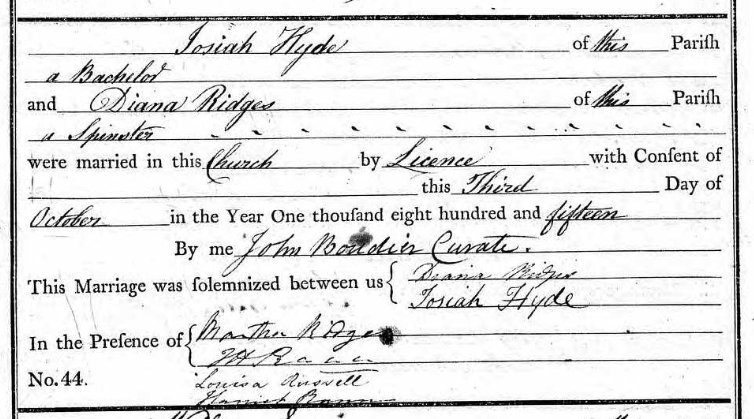 Josiah Hyde of this Pariſh
a Bachelor
and Diana Ridges of this Pariſh
a Spinster
were married in this Church by Licence with Conſent of
this Third Day of
October in the Year One thouſand eight hundred and fifteen
By me John Boudier Curate.
This Marriage was ſolemnized between us { Diana Ridges
Josiah Hyde
In the Preſence of { Martha Ridges
No. 44. Louisa Russell
Harriet